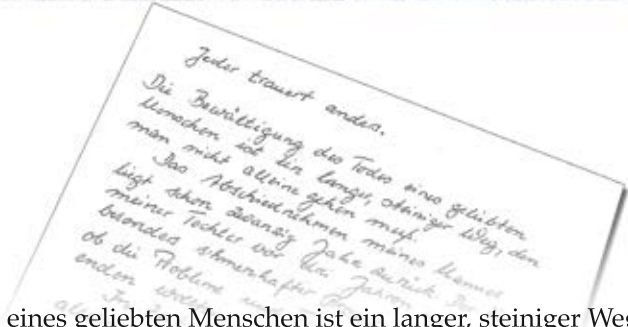 Jeder trauert anders.
Die Bewältigung des Todes eines geliebten
Menschen ist ein langer, steiniger Weg, den
man nicht alleine gehen muß.
Das Abschiednehmen meines Mannes
liegt schon zwanzig Jahre zurück
meiner Tochter vor drei Jahren
besonders schmerzhafter
ob die Probleme
enden
eines geliebten Menschen ist ein langer, steiniger Weg